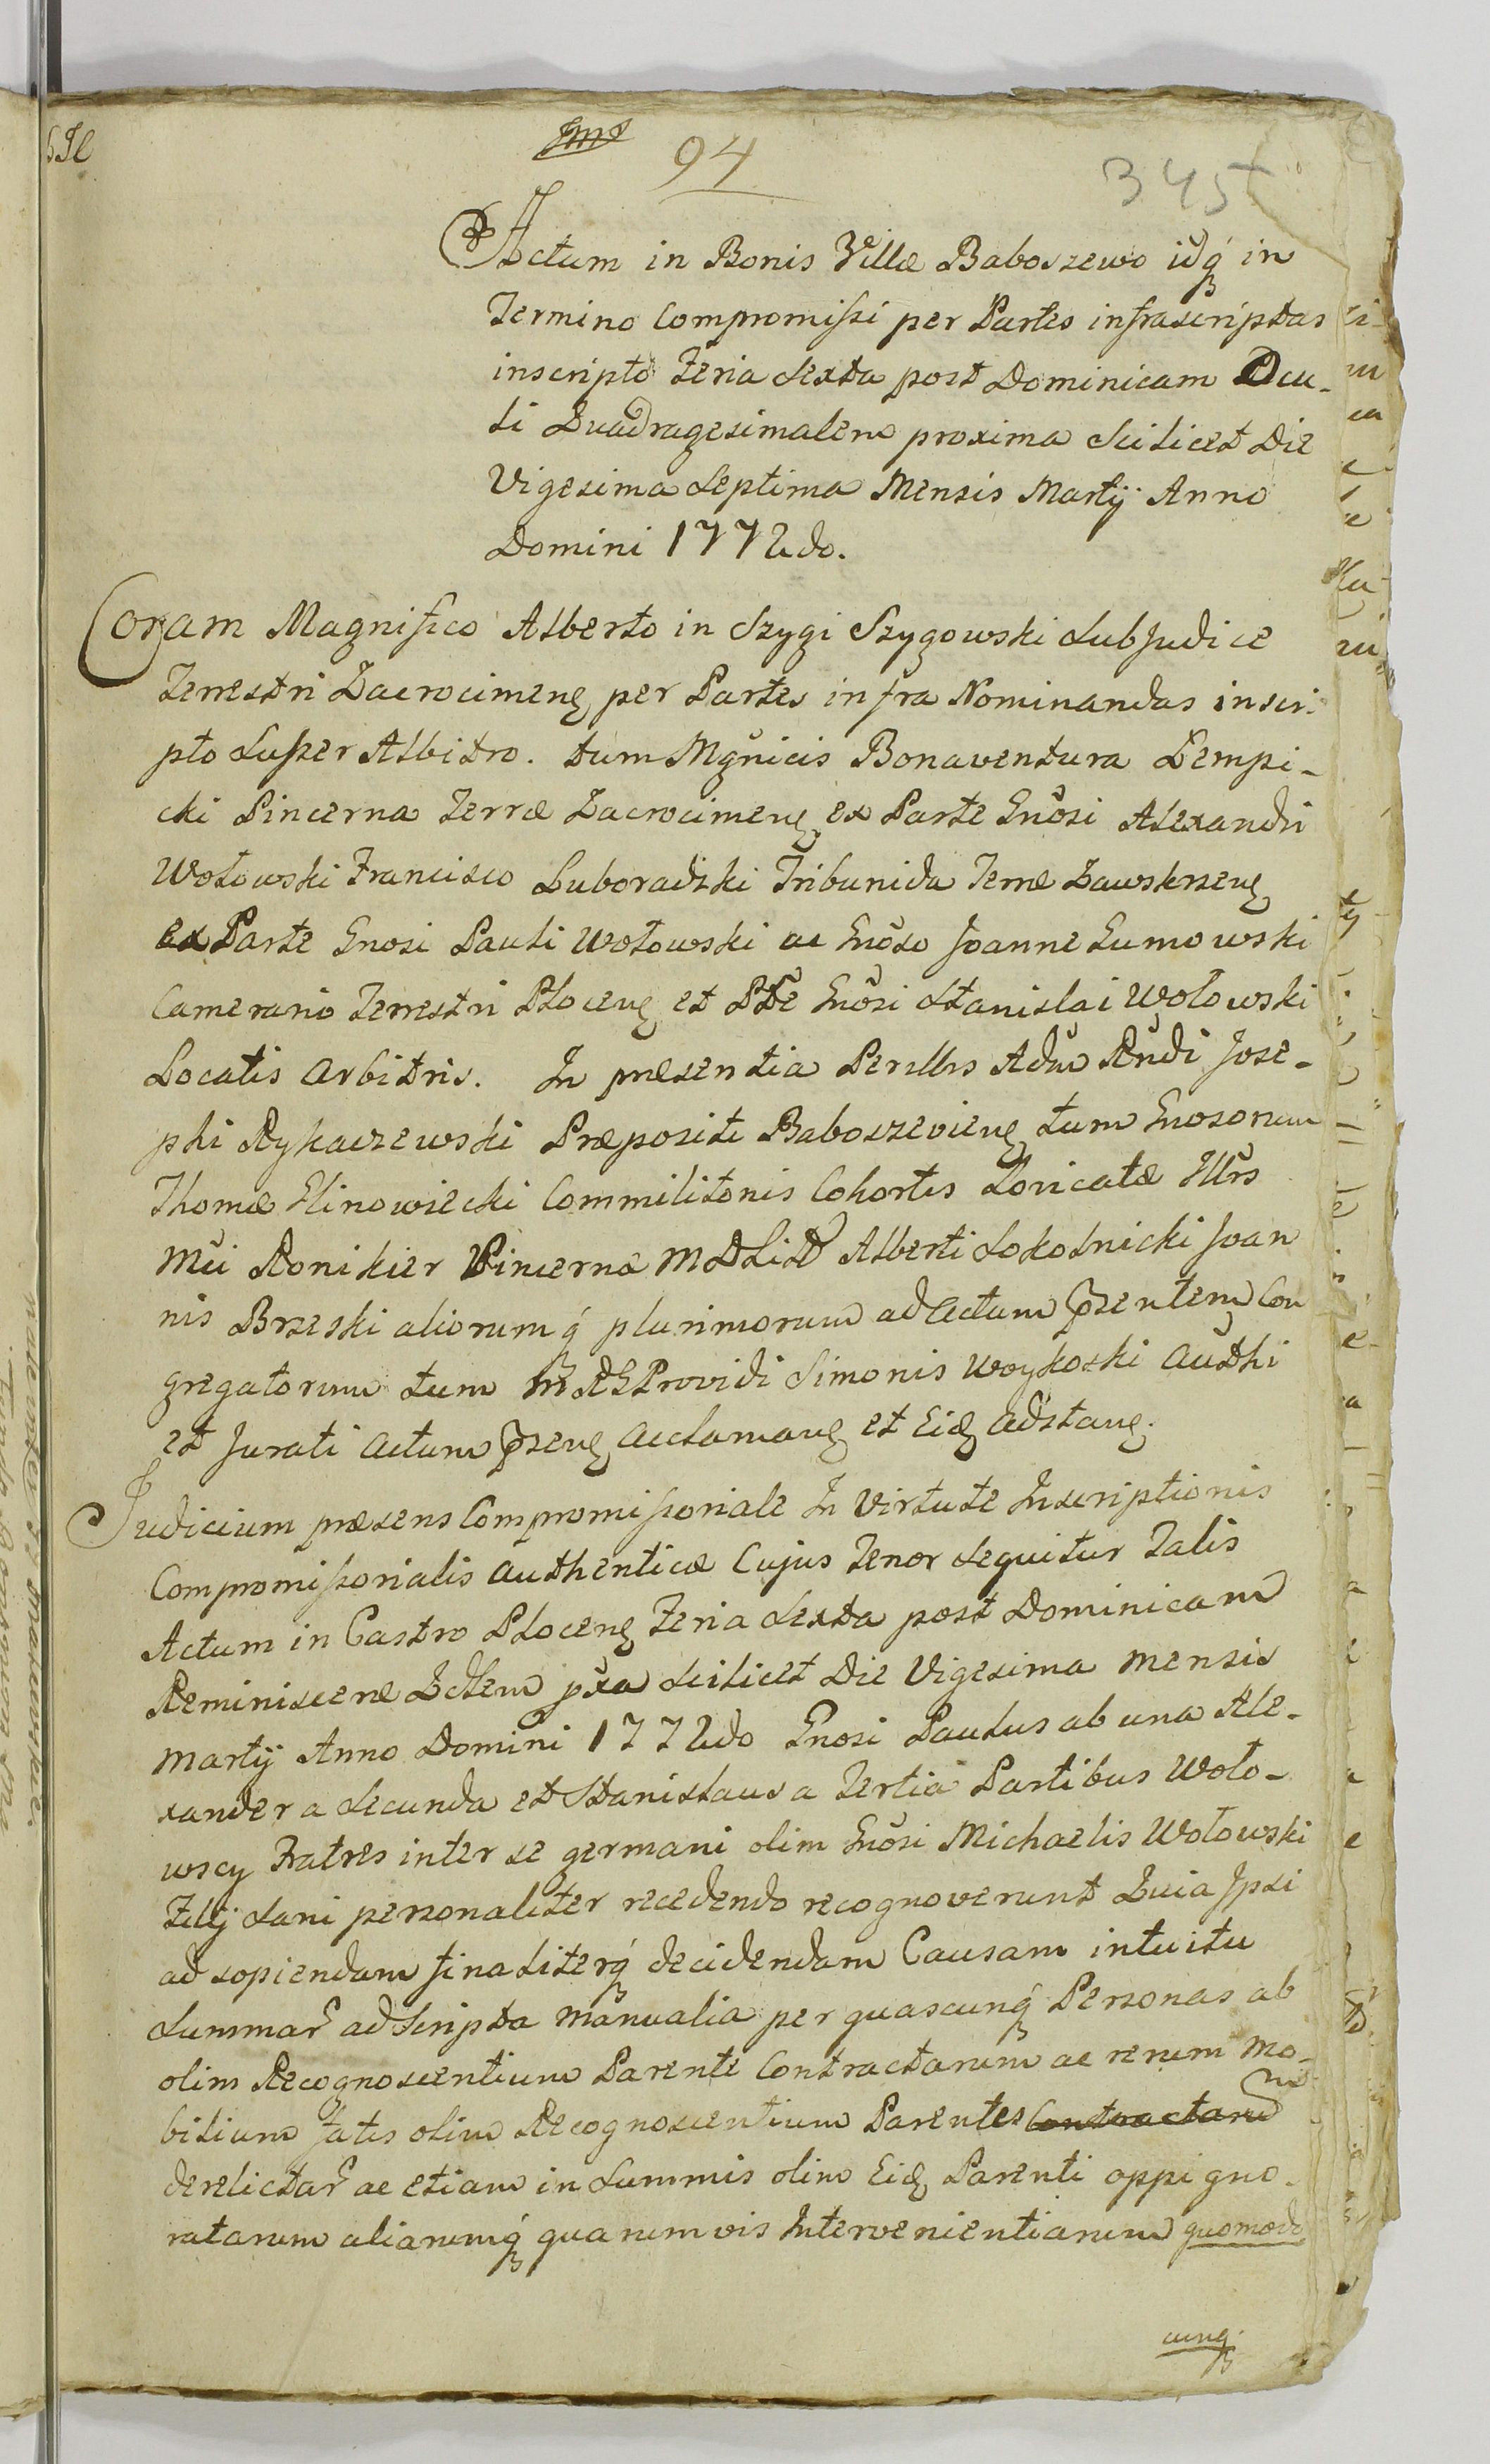 94
345
Actum in Bonis Villæ Baboszewo idq́ in
Termino Compromissi per Partes infrascriptas
inscripto Feria Sexta post Dominicam Ocu-
li Quadragesimalem proxima Scilicet Die
Vigesima Septima Mensis Martÿ Anno
Domini 1772do.
Coram Magnifico Alberto in Szygi Szygowski SubJudice
Terrestri Zacrocimenꝫ per Partes infra Nominandas inscri-
pto Super Albitro. tum Mgńicis Bonaventura Dempi-
cki Pincerna Terræ Zacrocimenꝫ ex Parte Gnosi Alexandri
Wołowski Francisco Luboradzki Tribunida Terræ Zawskrzenꝫ
ex Parte Gnosi Pauli Wołowski ac Gnoso Joanne Gumowski
Camerario Terrestri Płocenꝫ et Pte Gnosi Stanislai Wołowski
Locatis Arbitris. In præsentia Perillrs Adm Rndi Jose-
phi Rykaczewski Præpositi Baboszevienꝫ tum Gnosorum
Thomæ Glinowiecki Commilitonis Cohortis Loricatæ Illrs
Mci Ronikier Pincernæ MDLitt Alberti Sokolnicki Joan
nis Brzeski aliorumq́ plurimorum ad Actum pꝛzentem Con
gregatorum tum Providi Simonis Woykoski Authi
et Jurati Actum pꝛzenꝫ acclamanꝫ et Eidꝫ adstanꝫ.
Judicium præsens Compromissoriale In Virtute Inscriptionis
Compromissorialis Authenticæ Cujus Tenor sequitur Talis
Actum in Castro Płocenꝫ Feria Sexta post Dominicam
Reminiscere Qdlem pxa Scilicet Die Vigesima Mensis
Martÿ Anno Domini 1772do Gnosi Paulus ab una Ale-
xander a Secunda et Stanislaus a Tertia Partibus Woło-
wscy Fratres inter se germani olim Gnosi Michaelis Wołowski
Filÿ Sani personaliter recedendo recognoverunt Quia Ipsi
ad sopiendam finaliterq́ decidendam Causam intuitu
Summar̃ ad Scripta Manualia per quascunq́ Personas ab
olim Recognoscentium Parente Contractarum ac rerum Mo-
bilium fatis olim Recognoscentium Parentes Contractarum
derelictar̃ ac etiam in Summis olim Eidꝫ Parenti oppigno-
ratarum aliarumq́ quarumvis Intervenientiarum quomodo
cunq́.